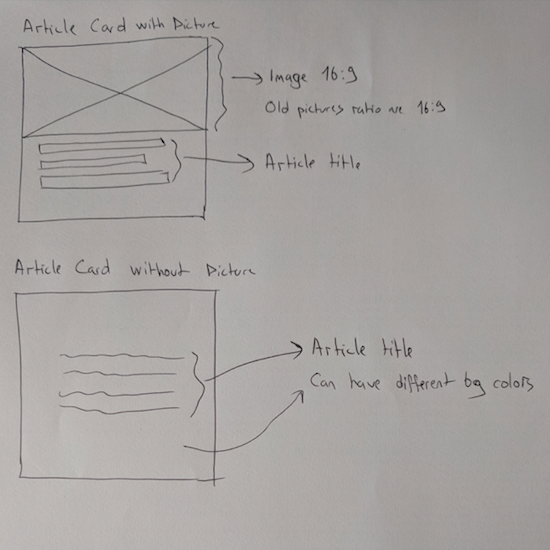 Article Card with Picture
Image 16:9
Old pictures ratio are 16:9
Article title
Article Card without Picture
Article title
Can have different bg colors